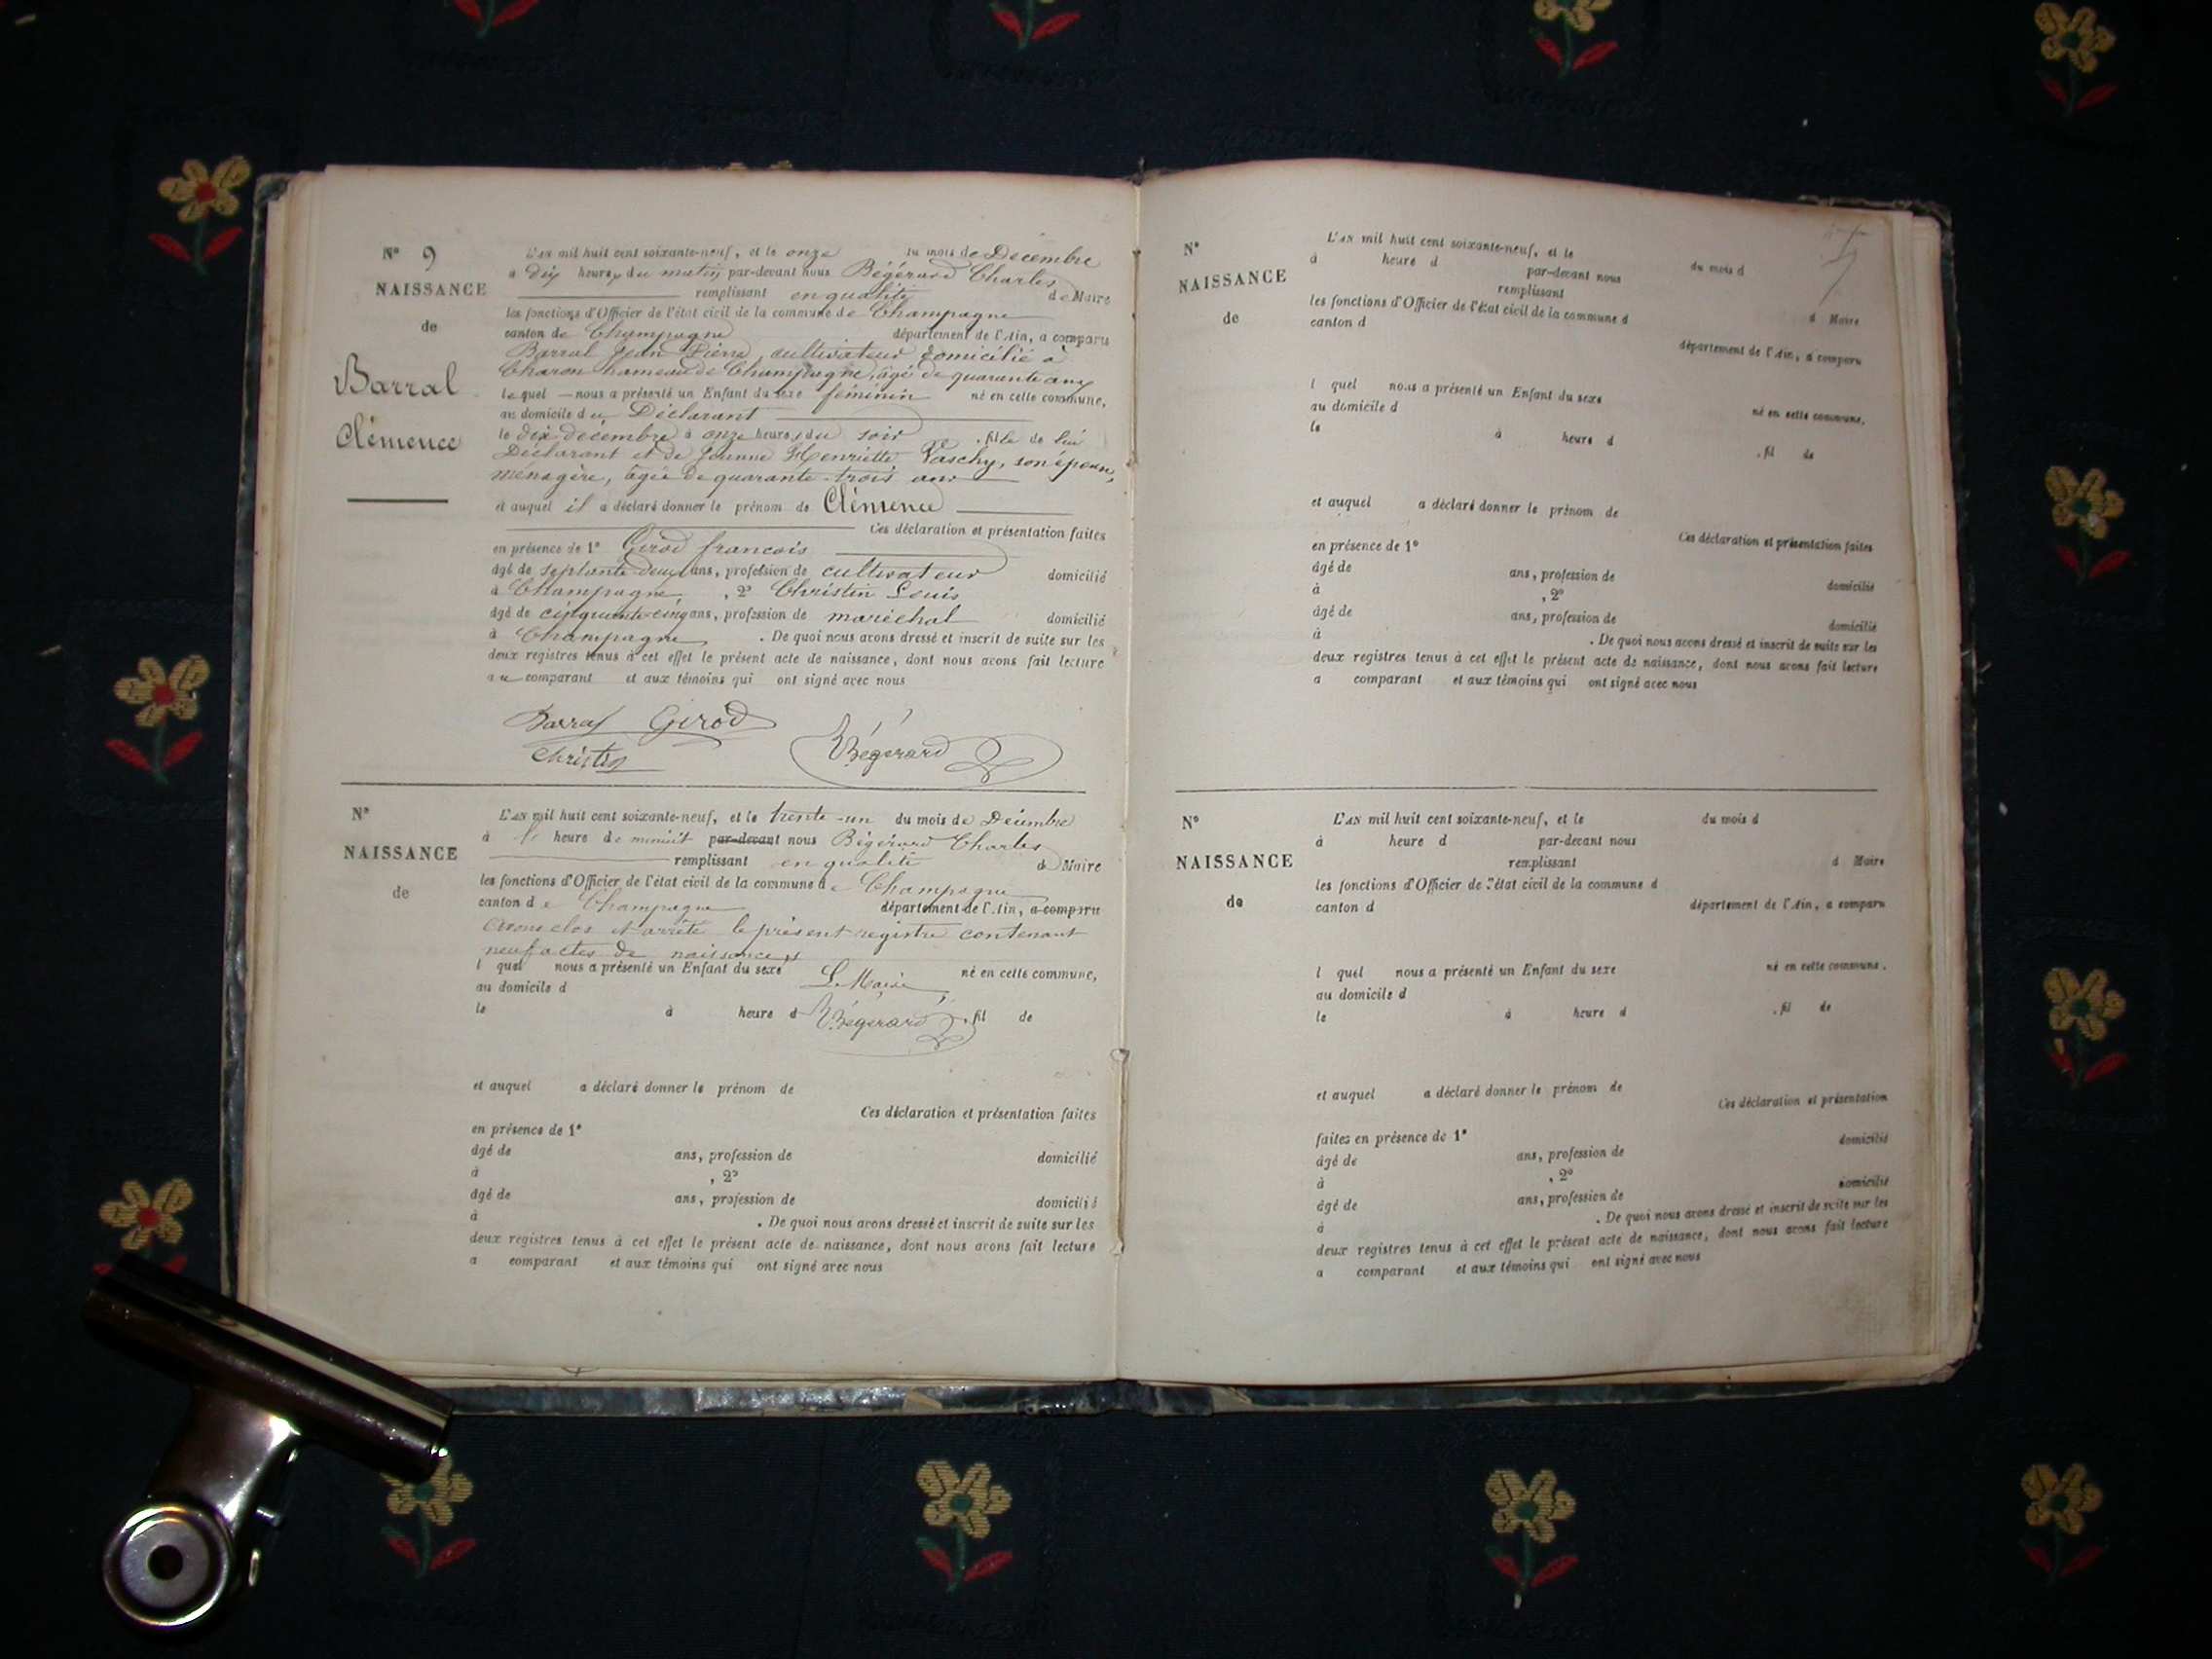 N° 9
NAISSANCE
de
Barral
Clémence
L'AN mil huit cent soixante-neuf, et le onze du mois de Décembre
à dix heures du matin par-devant nous Bégérard Charles
remplissant en qualité de Maire
les fonctions d'Officier de l'état civil de la commune de Champagne
canton de Champagne département de l'Ain, a comparu
Barral Jean Pierre, cultivateur domicilié à
Charon hameau de Champagne, âgé de quarante ans
lequel nous a présenté un Enfant du sexe féminin né en cette commune,
au domicile du Déclarant
le dix décembre à onze heures du soir , fille de lui
Déclarant et de Jeanne Henriette Vaschy, son épouse,
ménagère, âgée de quarante-trois ans
et auquel il a déclaré donner le prénom de Clémence
Ces déclaration et présentation faites
en présence de 1° Girod francois
âgé de septante-deux ans, profession de cultivateur domicilié
à Champagne, , 2° Christin Louis
âgé de cinquante-cinq ans, profession de maréchal domicilié
à Champagne . De quoi nous avons dressé et inscrit de suite sur les
deux registres tenus à cet effet le présent acte de naissance, dont nous avons fait lecture
au comparant et aux témoins qui ont signé avec nous
Barral Girod
Christin Bégerard
N°
NAISSANCE
de
L'AN mil huit cent soixante-neuf, et le trente-un du mois de Décembre
à heure de minuit par-devant nous Bégérard Charles
remplissant en qualité d Maire
les fonctions d'Officier de l'état civil de la commune de Champagne
canton de Champagne département de l'Ain, a comparu
avons clos et arrêté le présent registre contenant
neuf actes de naissances
l quel nous a présenté un Enfant du sexe né en cette commune,
au domicile d Le Maire
le à heure d Bégerard , fil de
et auquel a déclaré donner le prénom de
Ces déclaration et présentation faites
en présence de 1°
âgé de ans, profession de domicilié
à , 2°
âgé de ans, profession de domicilié
à . De quoi nous avons dressé et inscrit de suite sur les
deux registres tenus à cet effet le présent acte de naissance, dont nous avons fait lecture
a comparant et aux témoins qui ont signé avec nous
N°
NAISSANCE
de
L'AN mil huit cent soixante-neuf, et le du mois d
à heure d par-devant nous
remplissant d Maire
les fonctions d'Officier de l'état civil de la commune d
canton d département de l'Ain, a comparu
l quel nous a présenté un Enfant du sexe né en cette commune,
au domicile d
le à heure d , fil de
et auquel a déclaré donner le prénom de
Ces déclaration et présentation faites
en présence de 1°
âgé de ans, profession de domicilié
à , 2°
âgé de ans, profession de domicilié
à . De quoi nous avons dressé et inscrit de suite sur les
deux registres tenus à cet effet le présent acte de naissance, dont nous avons fait lecture
a comparant et aux témoins qui ont signé avec nous
N°
NAISSANCE
de
L'AN mil huit cent soixante-neuf, et le du mois d
à heure d par-devant nous
remplissant d Maire
les fonctions d'Officier de l'état civil de la commune d
canton d département de l'Ain, a comparu
l quel nous a présenté un Enfant du sexe né en cette commune,
au domicile d
le à heure d , fil de
et auquel a déclaré donner le prénom de
Ces déclaration et présentation
faites en présence de 1° domicilié
âgé de ans, profession de
à , 2° domicilié
âgé de ans, profession de
à . De quoi nous avons dressé et inscrit de suite sur les
deux registres tenus à cet effet le présent acte de naissance, dont nous avons fait lecture
a comparant et aux témoins qui ont signé avec nous